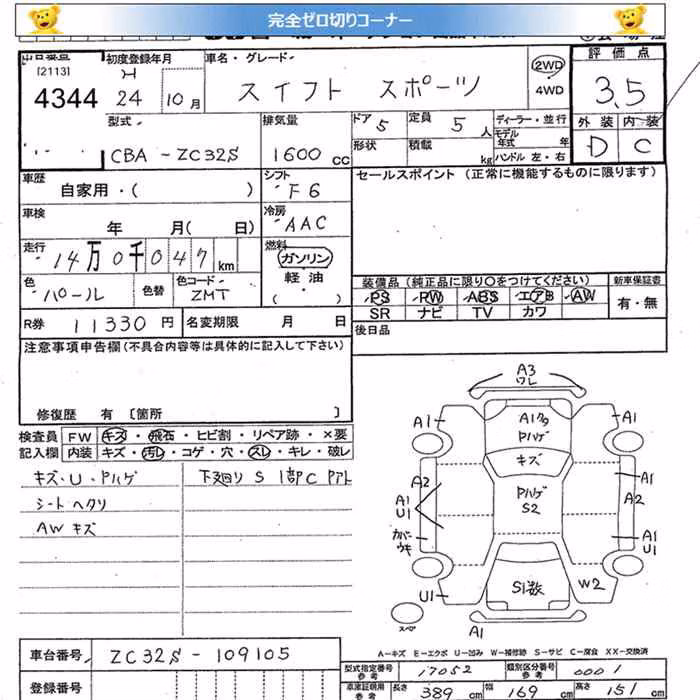 完全ゼロ切りコーナー
[2113] 初度登録年月 車名・グレード 評価点
4344 24 10月 スイフト スポーツ 2WD 4WD 3.5
外装 内装
D C
型式 排気量 ドア 5 定員 5人 ディーラー・並行
CBA-ZC32S 1600cc 形状 積載 kg モデル年式 年 ハンドル 左・右
車歴 シフト セールスポイント(正常に機能するものに限ります)
自家用・( ) F6
車検 冷房
年 月( 日) AAC
走行 燃料
14万0千047km ガソリン
軽油
( ・ )
色 色替 色コード 装備品(純正品に限り○をつけてください) 新車保証書
パール ZMT PS PW ABS エアB AW 有・無
SR ナビ TV カワ
R券 11330円 名変期限 月 日 後日品
注意事項申告欄(不具合内容等は具体的に記入して下さい)
修復歴 有 〔箇所 〕
検査員 FW キズ・飛石・ヒビ割・リペア跡・×要
記入欄 内装 キズ・汚レ・コゲ・穴・スレ・キレ・破レ
キズ・U・Pハゲ 下廻り S 1部C Pアト
シートヘタリ
AWキズ
A3
ワレ
A1 A1タ A1
Pハゲ
キズ
A2 A1
A1 Pハゲ A2
U1 S2
カバー A1
ウキ U1
S1数 W2
U1
スペア A1
A-キズ E-エクボ U-凹み W-補修跡 S-サビ C-腐食 XX-交換済
車台番号 ZC32S-109105
型式指定番号 参考 17052 類別区分番号 参考 0001
登録番号
車庫証明用 参考 長さ 389cm 幅 169cm 高さ 151cm